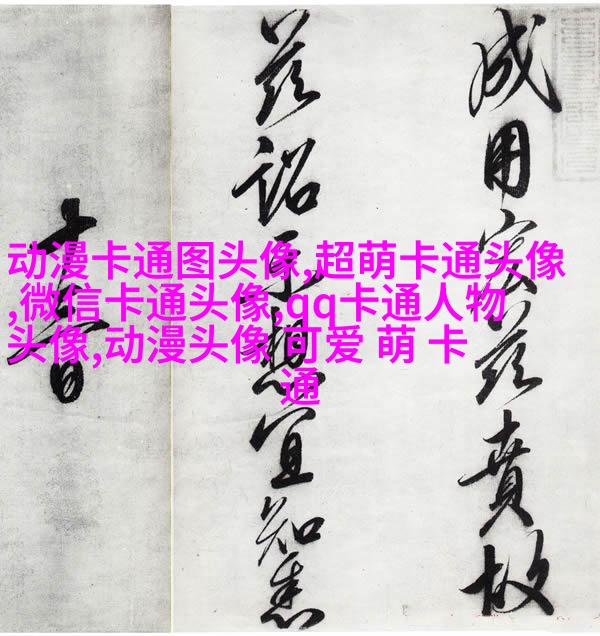 动漫卡通图头像,超萌卡通头像
,微信卡通头像,qq卡通人物
头像,动漫头像 可爱 萌 卡
通
成用宏茲賁故
茲詔示想宜知悉